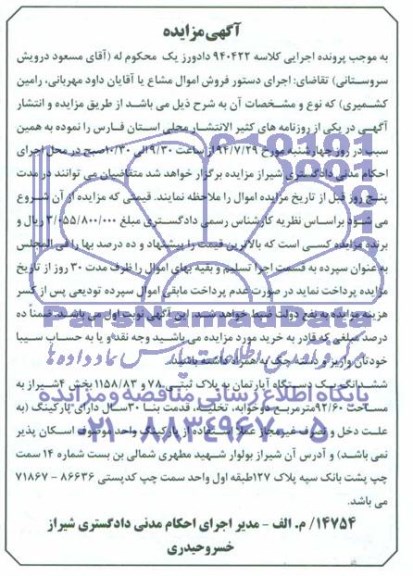 آگهی مزایده
به موجب پرونده اجرایی کلاسه ۹۴۰۴۲۲ دادورز یک محکوم له (آقای مسعود درویش
سروستانی) تقاضای: اجرای دستور فروش اموال مشاع با آقایان داود مهربانی، رامین
کشمیری) که نوع و مشخصات آن به شرح ذیل می باشد از طریق مزایده و انتشار
آگهی در یکی از روزنامه های کثیر الانتشار محلی استان فارس را نموده به همین
سبب در روز چهارشنبه مورخ ۹۴/۷/۲۹ از ساعت ۹/۳۰ الی ۱۰/۳۰ صبح در محل اجرای
احکام مدنی دادگستری شیراز مزایده برگزار خواهد شد متقاضیان می توانند در مدت
پنج روز قبل از تاریخ مزایده اموال را ملاحظه نمایند. قیمتی که مزایده از آن شروع
می شود براساس نظریه کارشناس رسمی دادگستری مبلغ ۳/۰۵۵/۸۰۰/۰۰۰ ریال و
برنده مزایده کسی است که بالاترین قیمت را پیشنهاد و ده درصد بها را فی المجلس
به عنوان سپرده به قسمت اجرا تسلیم و بقیه بهای اموال را ظرف مدت ۳۰ روز از تاریخ
مزایده پرداخت نماید در صورت عدم پرداخت مابقی اموال سپرده تودیعی پس از کسر
هزینه مزایده به نفع دولت ضبط خواهد شد. این آگهی نوبت اول می باشد. ضمنا ده
درصد مبلغی که قادر به خرید مورد مزایده می باشید وجه نقد و یا به حساب سیبا
خودتان واریز و دسته چک به همراه داشته باشید.
ششدانگ یک دستگاه آپارتمان به پلاک ثبتی ۷۸ و ۱۱۵۸/۸۳ بخش ۴ شیراز به
مساحت ۹۲/۶۰ مترمربع دوخوابه، تخلیه، قدمت بنا ۳۰ سال دارای پارکینگ (به
علت دخل و تصرف غیرمجاز عملا استفاده از پارکینگ واحد موصوف امکان پذیر
نمی باشد) و آدرس آن شیراز بولوار شهید مطهری شمالی بن بست شماره ۱۴ سمت
چپ پشت بانک سپه پلاک ۱۲۷ طبقه اول واحد سمت چپ کدپستی ۸۶۶۳۶ - ۷۱۸۶۷
می باشد.
۱۴۷۵۴/ م. الف - مدیر اجرای احکام مدنی دادگستری شیراز
خسرو حیدری
ParsNamadData
پایگاه اطلاع رسانی مناقصه و مزایده
۰۲۱-۸۸۳۴۹۶۷۰-۵